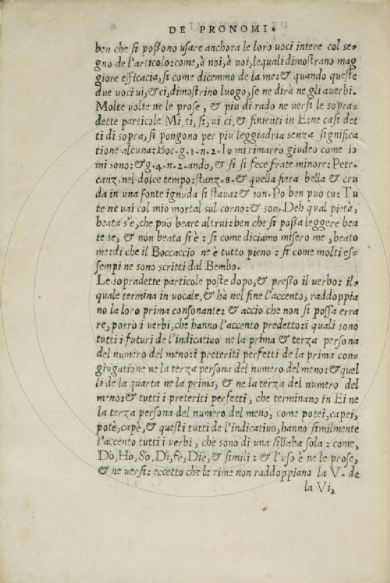 DE PRONOMI.
ben che si possono usare anchora le loro uoci intere col se=
gno de l'articolo: come, à noi, à uoi, lequali dimostrano mag
giore efficacia, si come dicemmo de la me: & quando queste
due uoci ui, & ci, dimostrino luogo, se ne dirà ne gli auerbi.
Molte uolte ne le prose, & piu di rado ne uersi le sopra=
dette particole Mi, ti, si, ui, ci, & finienti in E: ne casi det
ti di sopra, si pongono per piu leggiadria senza significa
tione alcuna: Boc. g. 1. n. 2. Io mi rimarrò giudeo come io
mi sono: & g. 4. n. 2. ando, & si si fece frate minore: Petr.
canz. nel dolce tempo: stanz. 8. & quella fiera bella & cru
da in una fonte ignuda si staua: & son. Po ben puo tu: Tu
te ne uai col mio mortal sul corno: & son. Deh qual pietà,
beata s'è, che puo beare altrui: ben che si possa leggere bea
ta se, & non beata si è: si come diciamo misero me, beato
me: di che il Boccaccio ne è tutto pieno: si come molti es=
sempi ne sono scritti dal Bembo.
Le sopradette particole poste dopo, & presso il uerbo: il=
quale termina in uocale, & hà nel fine l'accento, raddoppia
no la loro prima consonante: & accio che non si possa erra
re, porrò i uerbi, che hanno l'accento predetto: i quali sono
tutti i futuri de l'indicatiuo ne la prima & terza persona
del numero del meno: i preteriti perfetti de la prima con=
giugatione ne la terza persona del numero del meno: & quel
li de la quarta ne la prima, & ne la terza del numero del
meno: & tutti i preteriti perfetti, che terminano in Ei ne
la terza persona del numero del meno, come potei, capei,
potè, capè, & questi tutti de l'indicatiuo, hanno similmente
l'accento tutti i uerbi, che sono di una sillaba sola: come,
Dò, Hò, Sò, Dì, fè, Diè, & simili: & l'uso è ne le prose,
& ne uersi: eccetto che le rime non raddoppiano la V. de
la Vi,